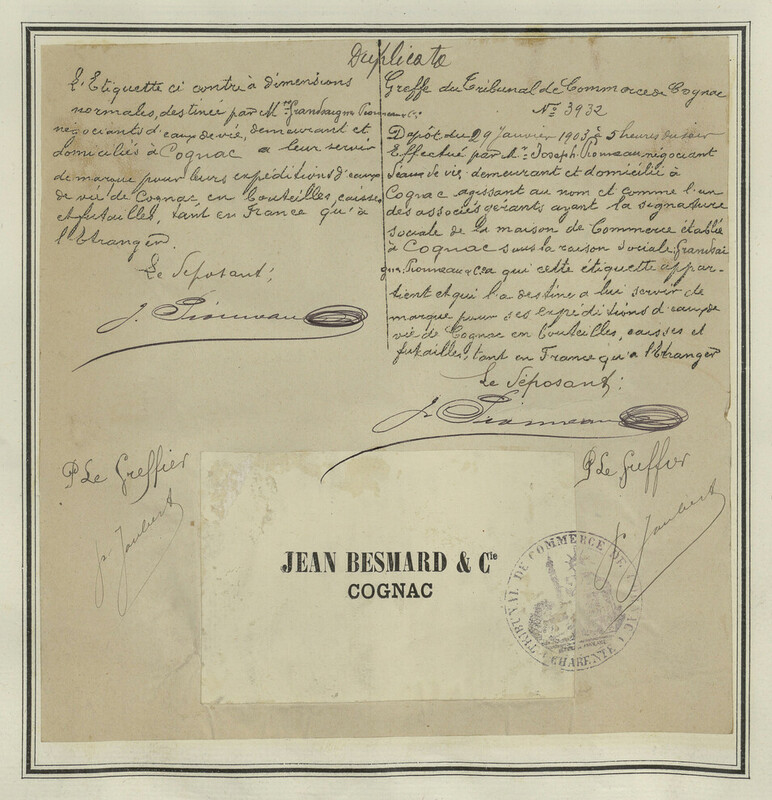 Duplicata
L'Etiquette ci contre à dimensions
normales, destinée par M
négociants d'eaux de vie, demeurant et
domiciliés à Cognac a leur servir
de marque pour leurs expéditions d'eaux
de vie de Cognac, en bouteilles, caisses
et futailles, tant en France qu'à
l'Etranger.
Le Déposant;
J. Pionneau
P Le Greffier
P. Joubert
Greffe du Tribunal de Commerce de Cognac
No 3932
Dépôt du 29 Janvier 1903, à 5 heures du soir
Effectué par Mr Joseph Pionneau, négociant
d'eaux de vie demeurant et domicilié à
Cognac agissant au nom et comme l'un
des associés gérants ayant la signature
sociale de la maison de Commerce établie
à Cognac sous la raison sociale
Pionneau & Cie a qui cette étiquette appar-
tient et qui l'a destine a lui servir de
marque pour ses expéditions d'eaux de
vie de Cognac en bouteilles, caisses et
futailles, tant en France qu'a l'Etranger
Le Déposant;
J. Pionneau
P Le Greffier
P. Joubert
JEAN BESMARD & Cie
COGNAC
TRIBUNAL DE COMMERCE DE COGNAC
(CHARENTE)